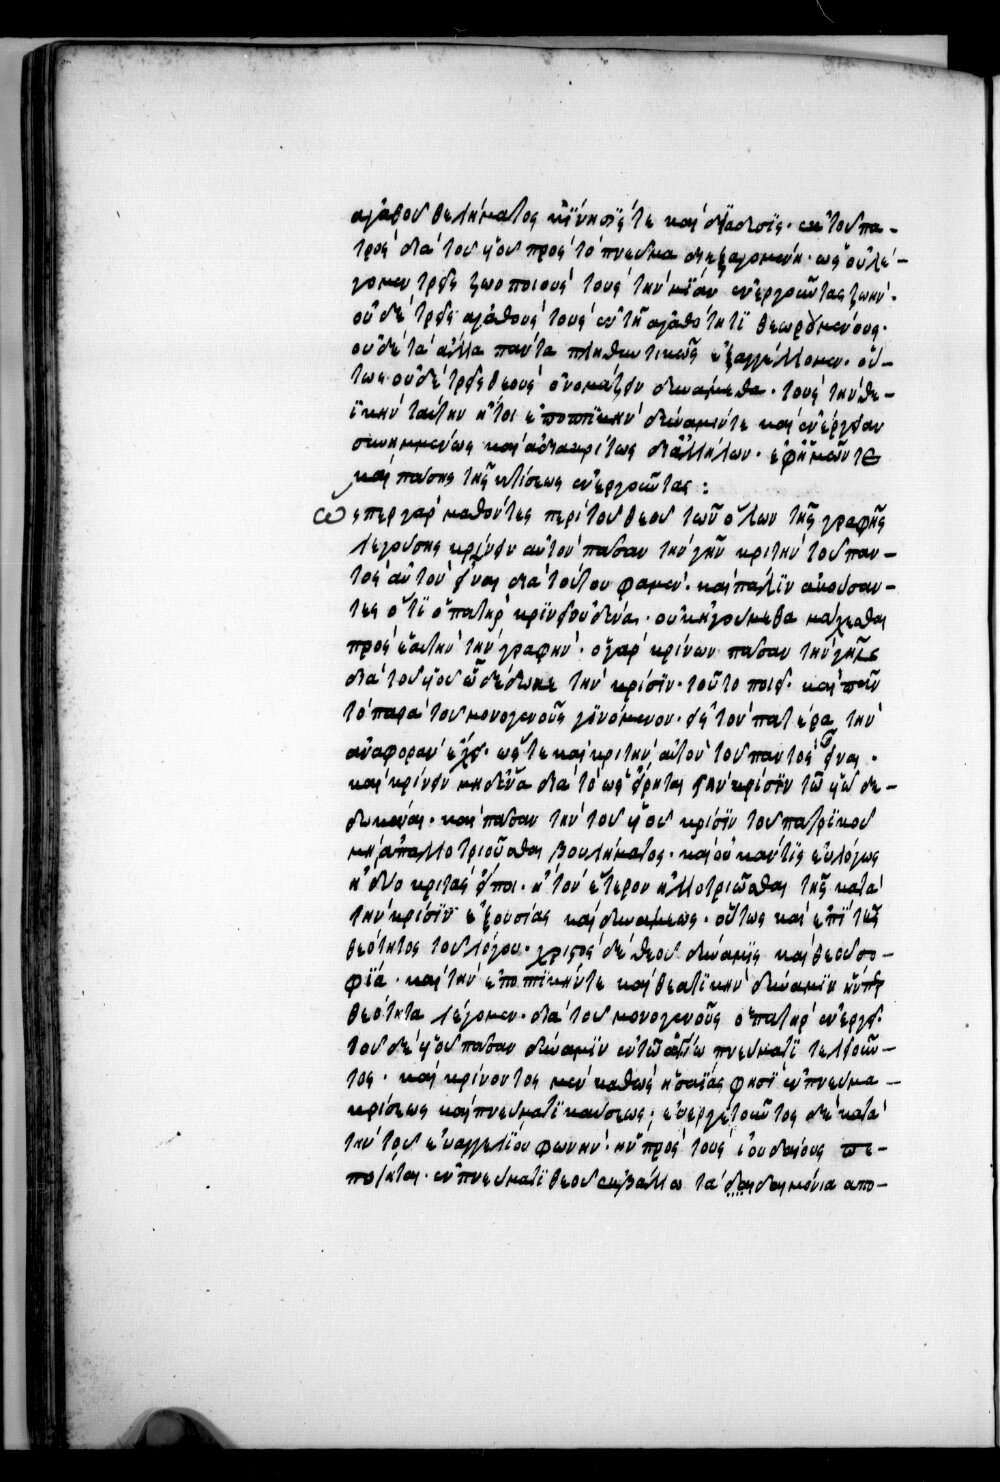 ἀγαθοῦ θελήματος κίνησίς τε καὶ διάδοσις· ἐκ τοῦ πα-
τρὸς διὰ τοῦ υἱοῦ πρὸς τὸ πνεῦμα διεξαγομένη· ὡς οὐ λέ-
γομεν τρεῖς ζωοποιοὺς τοὺς τὴν μίαν ἐνεργοῦντας ζωήν·
οὐδὲ τρεῖς ἀγαθοὺς τοὺς ἐν τῇ ἀγαθότητι θεωρουμένους·
οὐδὲ τὰ ἄλλα πάντα πληθυντικῶς ἐξαγγέλλομεν· οὕ-
τως οὐδὲ τρεῖς θεοὺς ὀνομάζειν δυνάμεθα· τοὺς τὴν θε-
ϊκὴν ταύτην ἤτοι ἐποπτικὴν δύναμίν τε καὶ ἐνέργειαν
συνημμένως καὶ ἀδιακρίτως δι' ἀλλήλων· ἐφ' ἡμῶν τε
καὶ πάσης τῆς κτίσεως ἐνεργοῦντας:
ὥσπερ γὰρ μαθόντες περὶ τοῦ θεοῦ τῶν ὅλων τῆς γραφῆς
λεγούσης κρίνειν αὐτὸν πᾶσαν τὴν γῆν κριτὴν τοῦ παν-
τὸς αὐτὸν εἶναι διὰ τούτου φαμέν· καὶ πάλιν ἀκούσαν-
τες ὅτι ὁ πατὴρ κρίνει οὐδένα· οὐκ ἡγούμεθα μάχεσθαι
πρὸς ἑαυτὴν τὴν γραφήν· ὁ γὰρ κρίνων πᾶσαν τὴν γῆν
διὰ τοῦ υἱοῦ ᾧ δέδωκε τὴν κρίσιν· τοῦτο ποιεῖ· καὶ πᾶν
τὸ παρὰ τοῦ μονογενοῦς γινόμενον· εἰς τὸν πατέρα τὴν
ἀναφορὰν ἔχει· ὥστε καὶ κριτὴν αὐτὸν τοῦ παντὸς εἶναι·
καὶ κρίνειν μηδένα διὰ τὸ ὡς εἴρηται τὴν κρίσιν τῷ υἱῷ δε-
δωκέναι· καὶ πᾶσαν τὴν τοῦ υἱοῦ κρίσιν τοῦ πατρικοῦ
μὴ ἀπαλλοτριοῦσθαι βουλήματος· καὶ οὐκ ἄν τις εὐλόγως
ἢ δύο κριτὰς εἴποι· ἢ τὸν ἕτερον ἠλλοτριῶσθαι τῆς κατὰ
τὴν κρίσιν ἐξουσίας καὶ δυνάμεως· οὕτως καὶ ἐπὶ τῆς
θεότητος τοῦ λόγου· χριστὸς δὲ θεοῦ δύναμις καὶ θεοῦ σο-
φία· καὶ τὴν ἐποπτικήν τε καὶ θεατικὴν δύναμιν ἥνπερ
θεότητα λέγομεν· διὰ τοῦ μονογενοῦς ὁ πατὴρ ἐνεργεῖ·
τοῦ δὲ υἱοῦ πᾶσαν δύναμιν ἐν τῷ ἁγίῳ πνεύματι τελειοῦν-
τος· καὶ κρίνοντος μὲν καθὼς ἠσαΐας φησὶ ἐν πνεύμα-
κρίσεως καὶ πνεύματι καύσεως; ἐνεργετοῦντος δὲ κατὰ
τὴν τοῦ εὐαγγελίου φωνήν· ἣν πρὸς τοὺς ἰουδαίους πε-
ποίηται· ἐν πνεύματι θεοῦ ἐκβάλλω τὰ δαιδαιμόνια ἀπο-